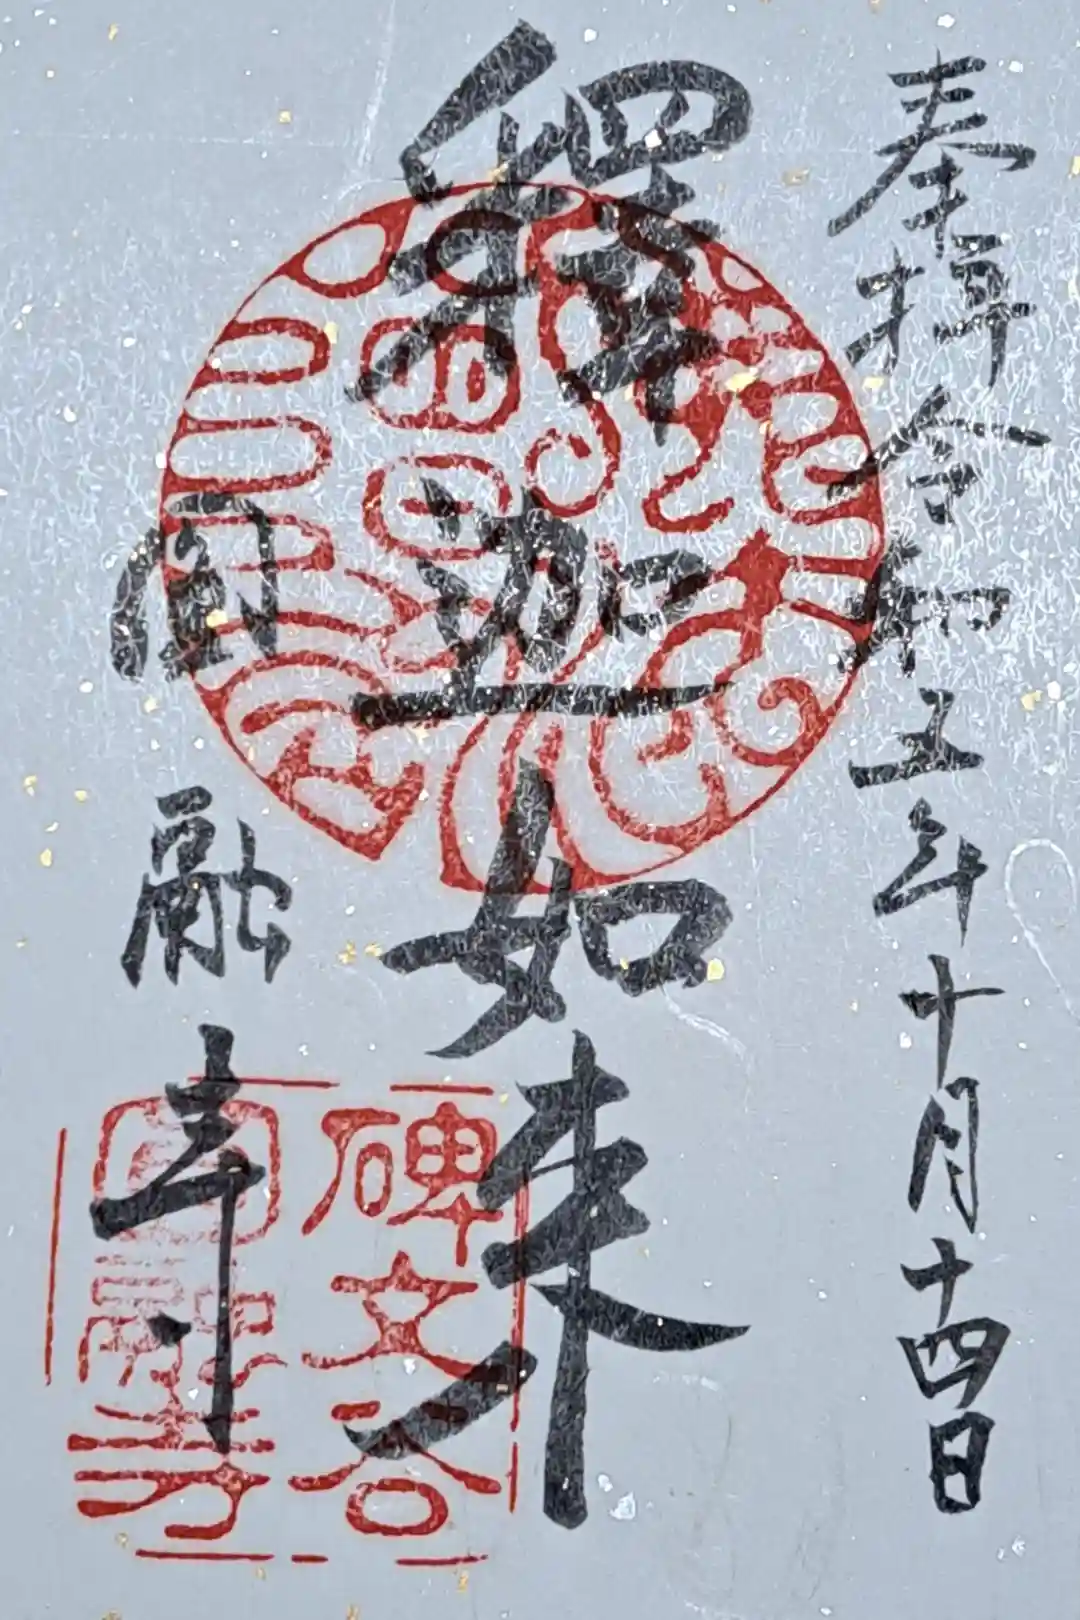 奉拝 令和五年十月十四日
釋迦如来
圓融寺
碑文谷
圓融寺